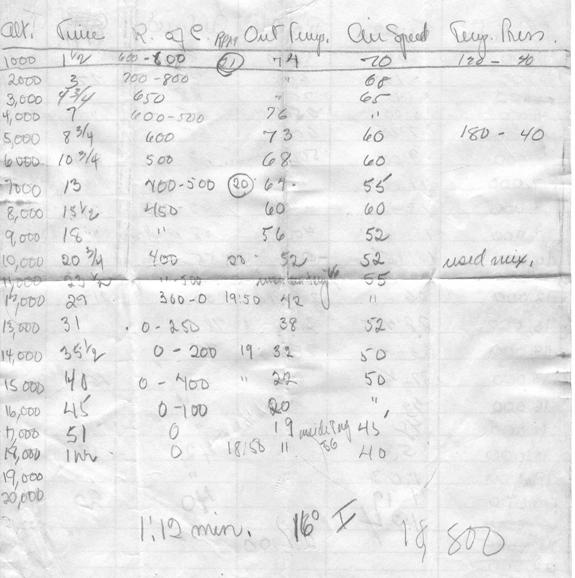 Alt. Time R. of C. RPM Out Temp. Air Speed Temp. Press.
1000 1 1/2 600-800 21 74 70 120 - 40
2000 3 700-800 " 68
3,000 4 3/4 650 " 65
4,000 7 600-500 76 "
5,000 8 3/4 600 73 60 180 - 40
6000 10 3/4 500 68 60
7000 13 400-500 20 64. 55
8,000 15 1/2 450 60 60
9,000 18 " 56 52
10,000 20 3/4 400 20 52 52 used mix.
11,000 23 1/2 "-500 55
12,000 29 360-0 19:50 42 "
13,000 31 0-250 38 52
14,000 35 1/2 0-200 19 32 50
15,000 40 0-400 " 22 50
16,000 45 0-100 20 "
17,000 51 0 19 inside 45
18,000 1 hr 0 18/50 " 36 40
19,000
20,000
1:12 min. 16° I 18,800